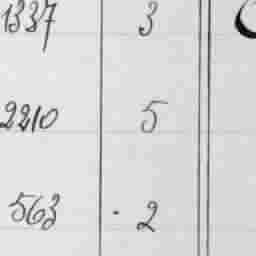 1337 3
2210 5
563 · 2